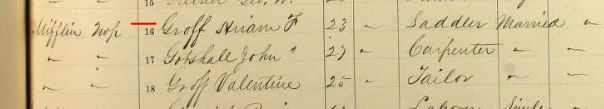 Mifflin Twp 16 Groff Hiram F 23 " Saddler Married "
" " 17 Gotshall John " 29 " Carpenter " "
" " 18 Groff Valentine 25 " Tailor " "